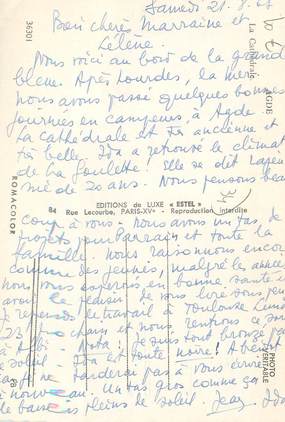 Samedi 21.8.67
Bien chères Marraine et
Hélène.
Nous voici au bord de la grande
bleue. Après Lourdes, la mer
nous avons passé quelques bonnes
journées en campeurs, à Agde.
La cathédrale est très ancienne et
très belle. Ida a retrouvé le climat
de La Goulette. Elle se dit
de 20 ans. Nous pensons beau
EDITIONS de LUXE « ESTEL »
84 Rue Lecourbe, PARIS-XV° - Reproduction interdite
coup à vous. nous avons un tas de
projets pour Parrain et toute la
famille. nous raisonnons encore
comme des jeunes, malgré les années
nous vous espérons en bonne santé
le plaisir de vous lire sous peu
Je reprends le travail à Toulouse Lundi
23 prochain et nous rentrons ce soir
à Albi. Nota! Je suis tout bronzé par
le soleil - Ida est toute noire! A bientôt
ne tarderai pas à vous écrire
à nouveau. Un tas gros comme ça
de baisers pleins de soleil. Jean Ida
36301
ROMACOLOR
La Cathédrale
AGDE
PHOTO
VERITABLE